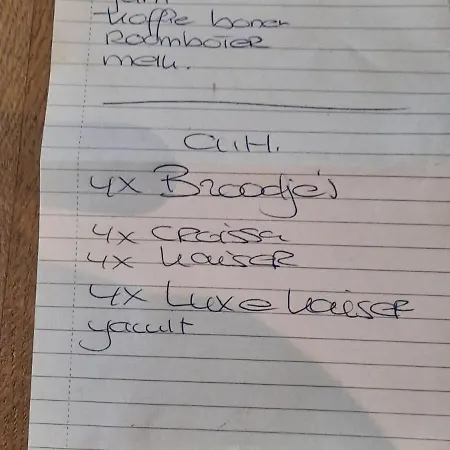 koffie bonen
Roomboter
melk.
A.H.
4x Broodje's
4x croissa
4x kaiser
4x Luxe kaiser
yacult